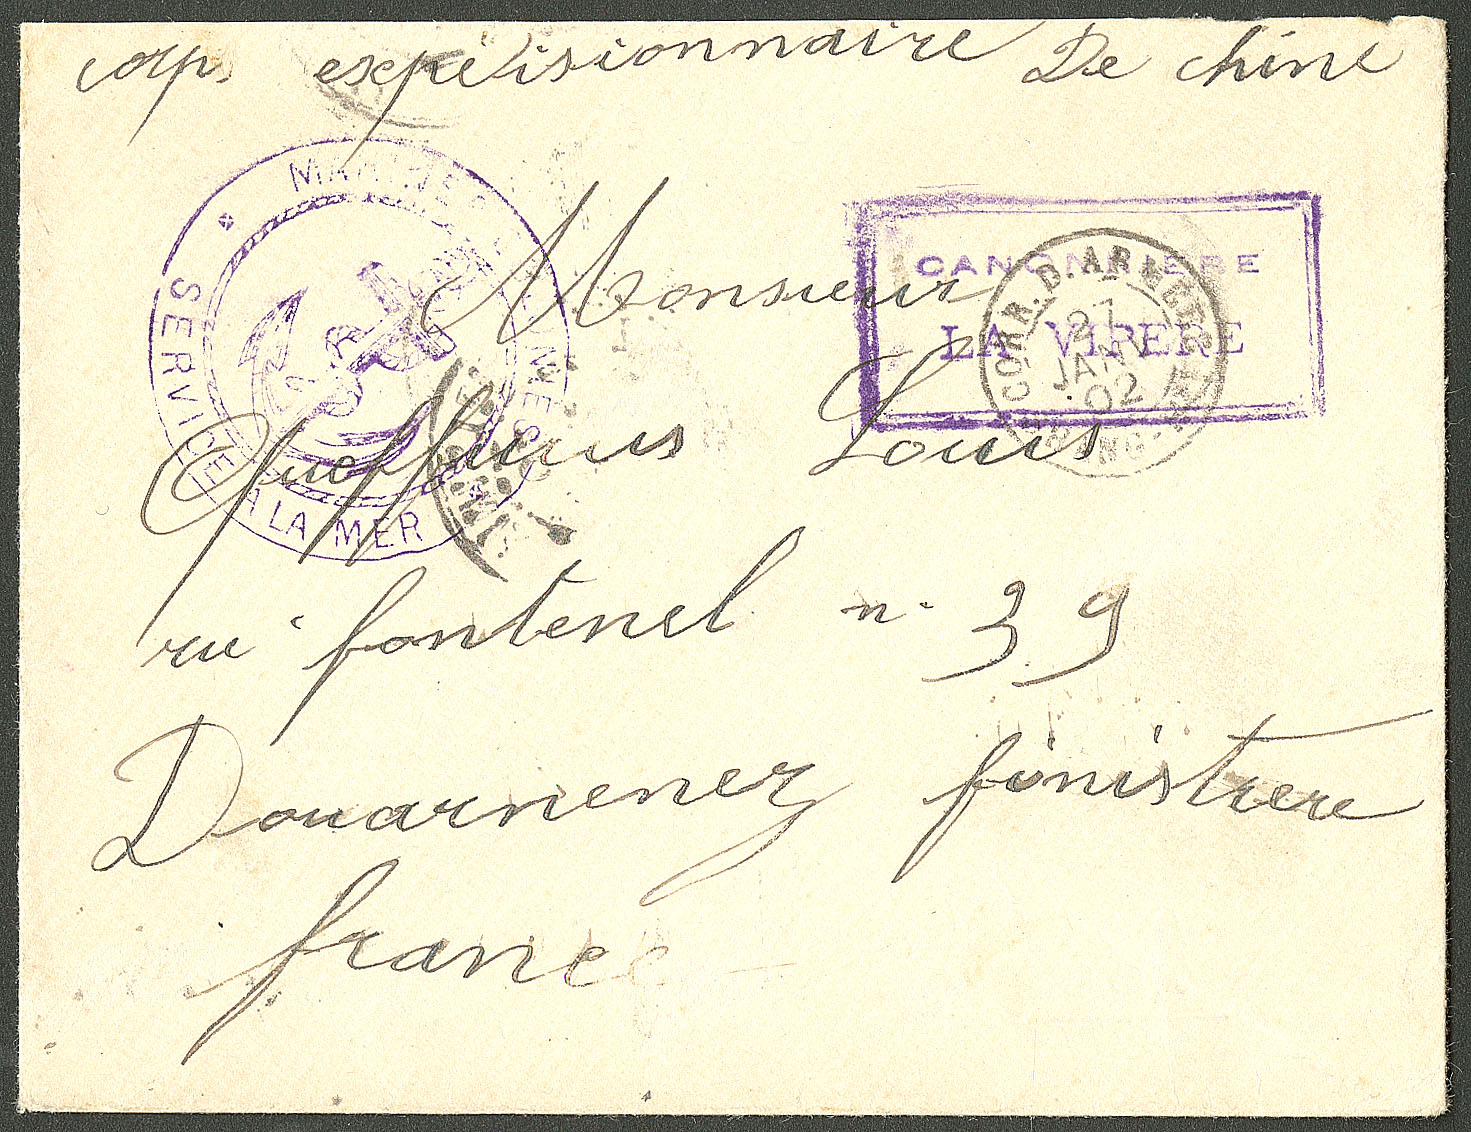 corps expedisionnaire De chine
MARINE FRANÇAISE
SERVICE A LA MER
CANONNIERE
LA VIPERE
CORR. D. ARMÉES
27
JANV
02
Monsieur
Queffurus Louis
rue fontenel n. 39
Douarnenez finistrere
france